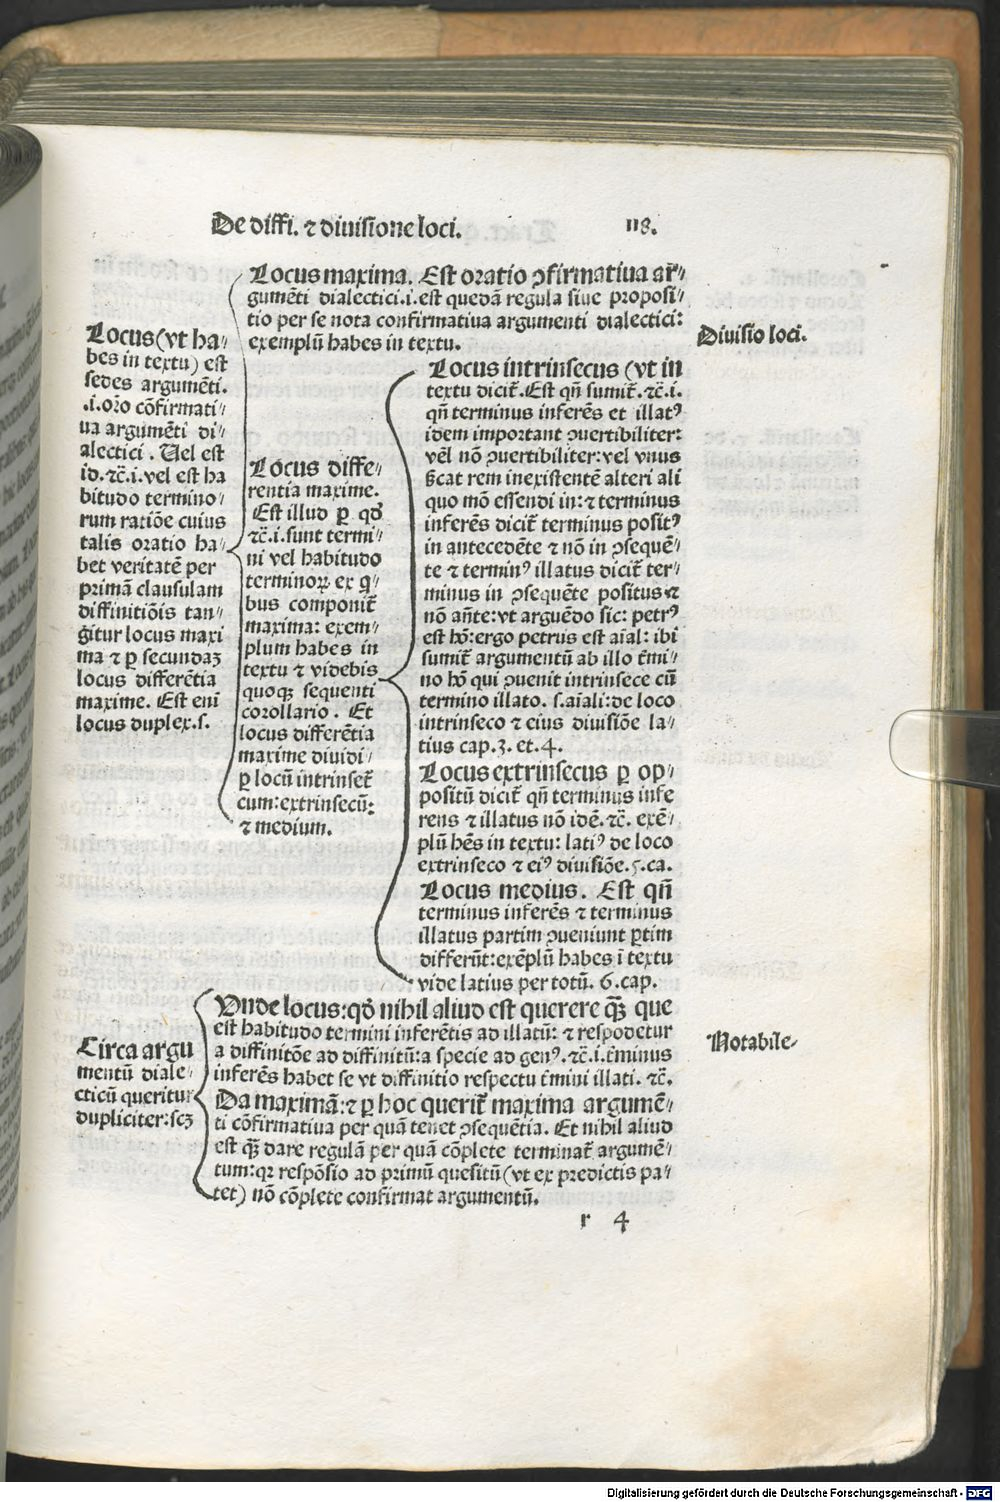 De diffi. ⁊ diuisione loci.
118.
Locus (vt ha⸗
bes in textu) est
sedes argumẽti.
.i. oŕo cõfirmati⸗
ua argumẽti di⸗
alectici. Uel est
id. ⁊c̃. i. vel est ha
bitudo termino⸗
rum ratiõe cuius
talis oratio ha⸗
bet veritatẽ per
primã clausulam
diffinitiõis tan⸗
gitur locus maxi
ma ⁊ ꝑ secundaꝫ
locus differẽtia
maxime. Est eni
locus duplex. s.
Locus maxima. Est oratio ꝯfirmatiua ar⸗
gumẽti dialectici. i. est quedã regula siue proposi⸗
tio per se nota confirmatiua argumenti dialectici:
exemplũ habes in textu.
Diuisio loci.
Locus diffe⸗
rentia maxime.
Est illud ꝑ qḋ
⁊c̃. i. sunt termi⸗
ni vel habitudo
terminoꝝ ex q⸗
bus componit̃
maxima: exem⸗
plum habes in
textu ⁊ videbis
quoqꝫ sequenti
corollario. Et
locus differẽtia
maxime diuidi⸗
ꝑ locũ intrinsec̃
cum: extrinsecũ:
⁊ medium.
Locus intrinsecus (vt in
textu dicit̃. Est qñ sumit̃. ⁊c̃. i.
qñ terminus inferẽs et illatꝰ
idem important ꝯuertibiliter:
vel nõ ꝯuertibiliter: vel vnus
ßcat rem inexistentẽ alteri ali
quo mõ essendi in: ⁊ terminus
inferẽs dicit̃ terminus positꝰ
in antecedẽte ⁊ nõ in ꝯsequẽ⸗
te ⁊ terminꝰ illatus dicit̃ ter⸗
minus in ꝯsequẽte positus ⁊
nõ añte: vt arguẽdo sic: petrꝰ
est hõ: ergo petrus est aĩal: ibi
sumit̃ argumentũ ab illo t̃mi⸗
no hõ qui ꝯuenit intrinsece cũ
termino illato. s. aĩali: de loco
intrinseco ⁊ eius diuisiõe la⸗
tius cap. 3. et. 4.
Locus extrinsecus ꝑ op⸗
positũ dicit̃ qñ terminus infe
rens ⁊ illatus nõ idẽ. ⁊c̃. exẽ⸗
plũ hẽs in textu: latiꝰ de loco
extrinseco ⁊ eiꝰ diuisiõe. 5. ca.
Locus medius. Est qñ
terminus inferẽs ⁊ terminus
illatus partim ꝯueniunt ꝑtim
differũt: exẽplũ habes i textu
vide latius per totũ. 6. cap.
Circa argu
mentũ diale⸗
cticũ queritur
dupliciter: scꝫ
Unde locus: qḋ nihil aliud est querere qꝫ̃ que
est habitudo termini inferẽtis ad illatũ: ⁊ respõdetur
a diffinitõe ad diffinitũ: a specie ad genꝰ. ⁊c̃. i. t̃minus
inferẽs habet se vt diffinitio respectu t̃mini illati. ⁊c̃.
Da maximã: ⁊ ꝑ hoc querit̃ maxima argumẽ⸗
ti cõfirmatiua per quã tenet ꝯsequẽtia. Et nihil aliud
est qꝫ̃ dare regulã per quã cõplete terminat̃ argumẽ⸗
tum: qꝛ respõsio ad primũ quesitũ (vt ex predictis pa⸗
tet) nõ cõplete confirmat argumentũ.
Notabile.
r 4
Digitalisierung gefördert durch die Deutsche Forschungsgemeinschaft - DFG